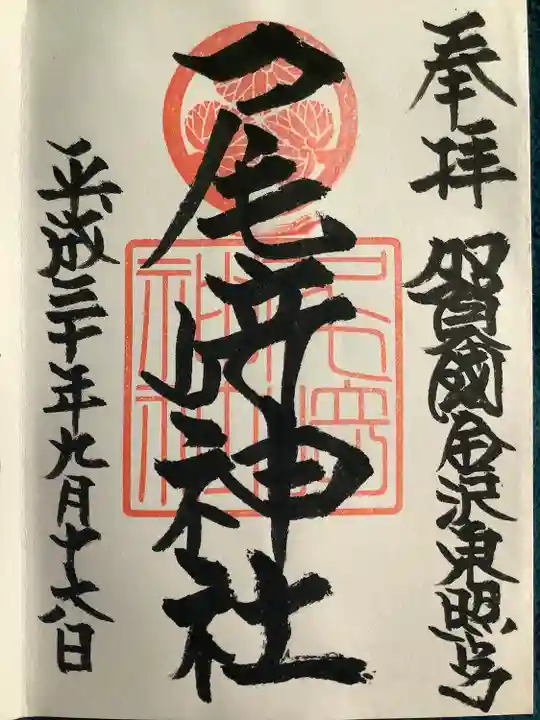 奉拝
加賀國金沢東照宮
尾﨑神社
尾﨑
神社
平成三十年九月十六日